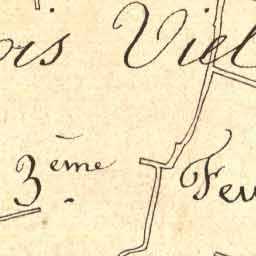 ois Viel
3.ème Feu